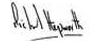 Richard Hepworth